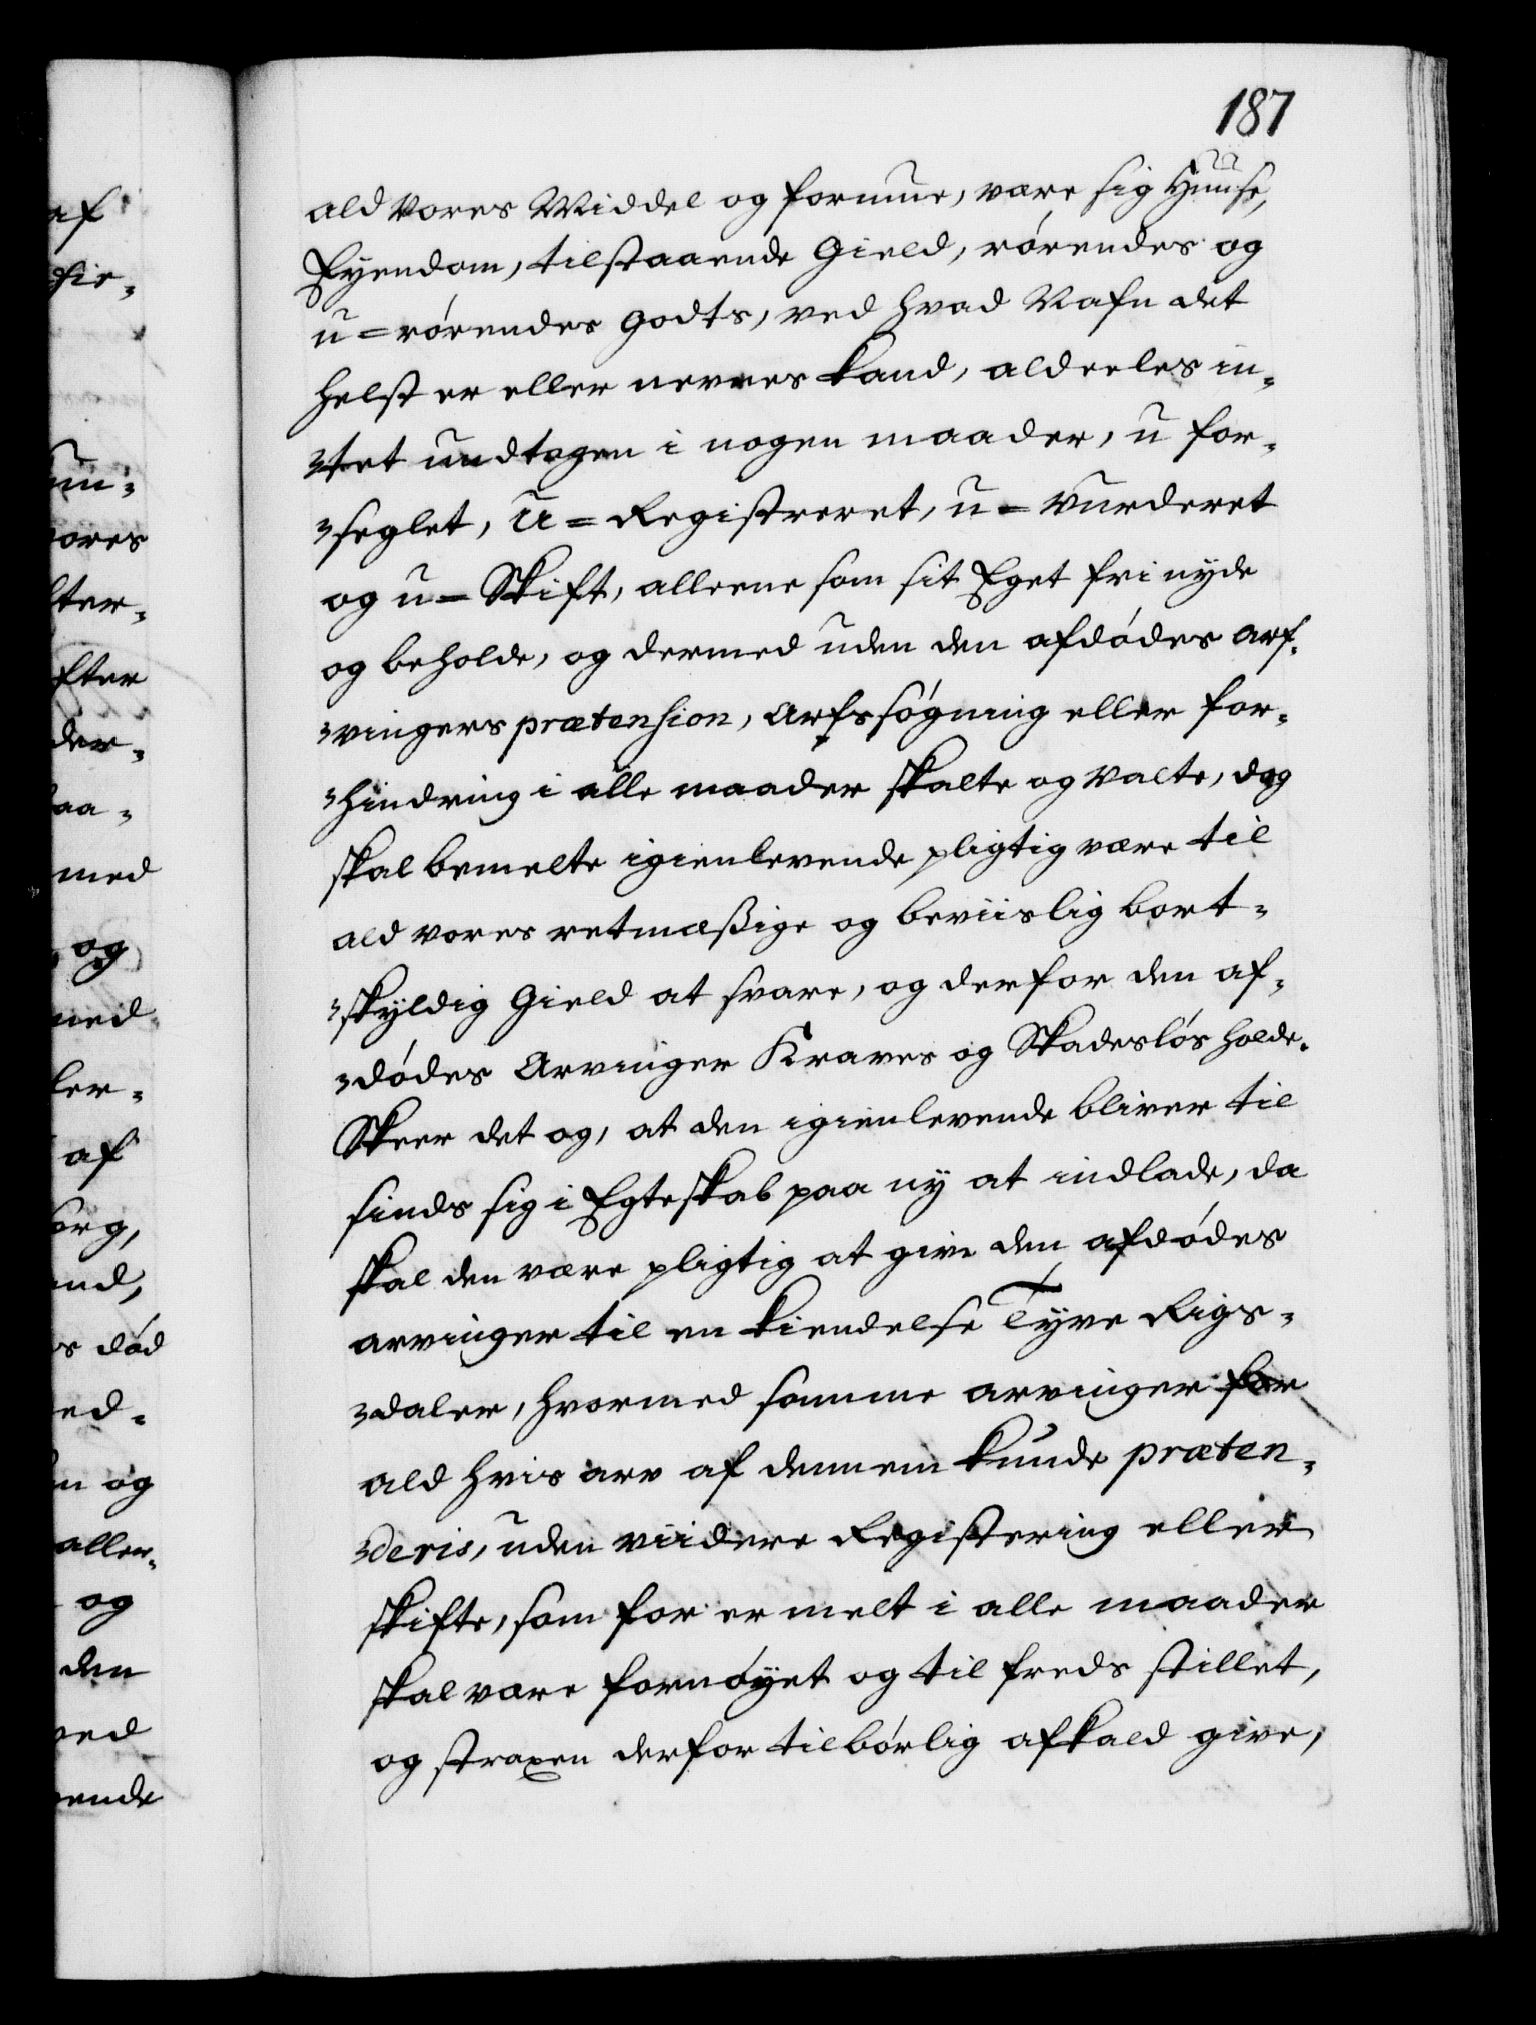 187
ald vores Middel og formue, være sig Huuse,
Eyendom, tilstaaende Gield, rørendes og
u-rørendes Godts, ved hvad Nafn det
helst er eller nevnes kand, aldeeles in-
-tet undtagen i nogen maader, u for-
-seglet, U-Registreret, u-Vurderet
og u-Skift, alleene som sit Eget frinyde
og beholde, og dermed uden den afdødes arf-
-vingers prætension, arfssøgning eller for-
-hindring i alle maader skalte og valte, dog
skal bemelte igienlevende pligtig være til
ald vores retmæßige og beviislig bort-
-skyldig Gield at svare, og derfor den af-
-dødes Arvinger Kraves og Skadesløs holde.
Skeer det og, at den igienlevende bliver til
sinds sig i Egteskab paa ny at indlade, da
skal den være pligtig at give den afdødes
arvinger til en kiendelse Tyve Rigs-
-daler, hvormed samme arvinger for
ald hvis arv af dennem kunde præten-
-deris, uden viidere Registering eller
skifte, som for er melt i alle maader
skal være fornøyet og til freds stillet,
og straxen derfor tilbørlig afkald give,
af
fie-
un-
vores
fter-
efter
der-
aa-
med
og
med
ler-
af
org,
and,
s død
ed-
n og
aller-
og
den
ved
vende